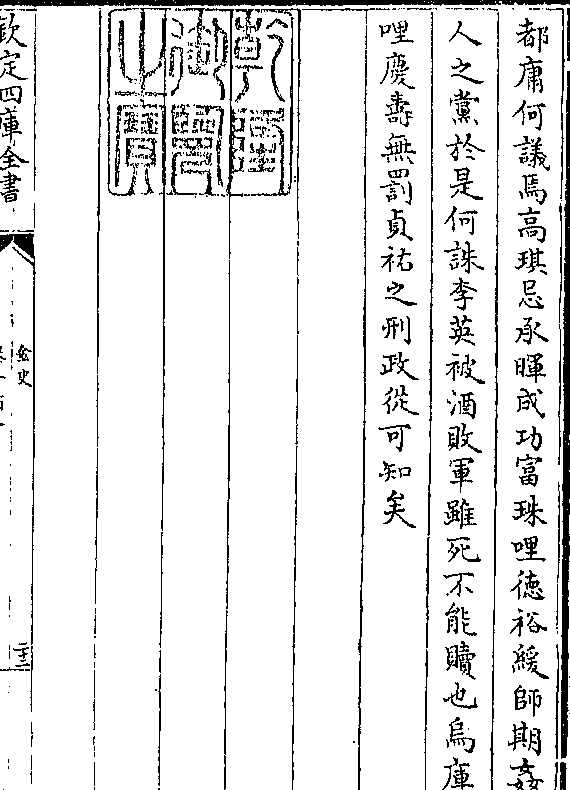 都庸何議焉高琪忌承暉成功富珠哩德裕緩師期姦
人之黨於是何誅李英被酒敗軍雖死不能贖也烏庫
哩慶壽無罰貞祐之刑政從可知矣
乾隆御覽之寶
欽定四庫全書
金史
卷一百一
二十二